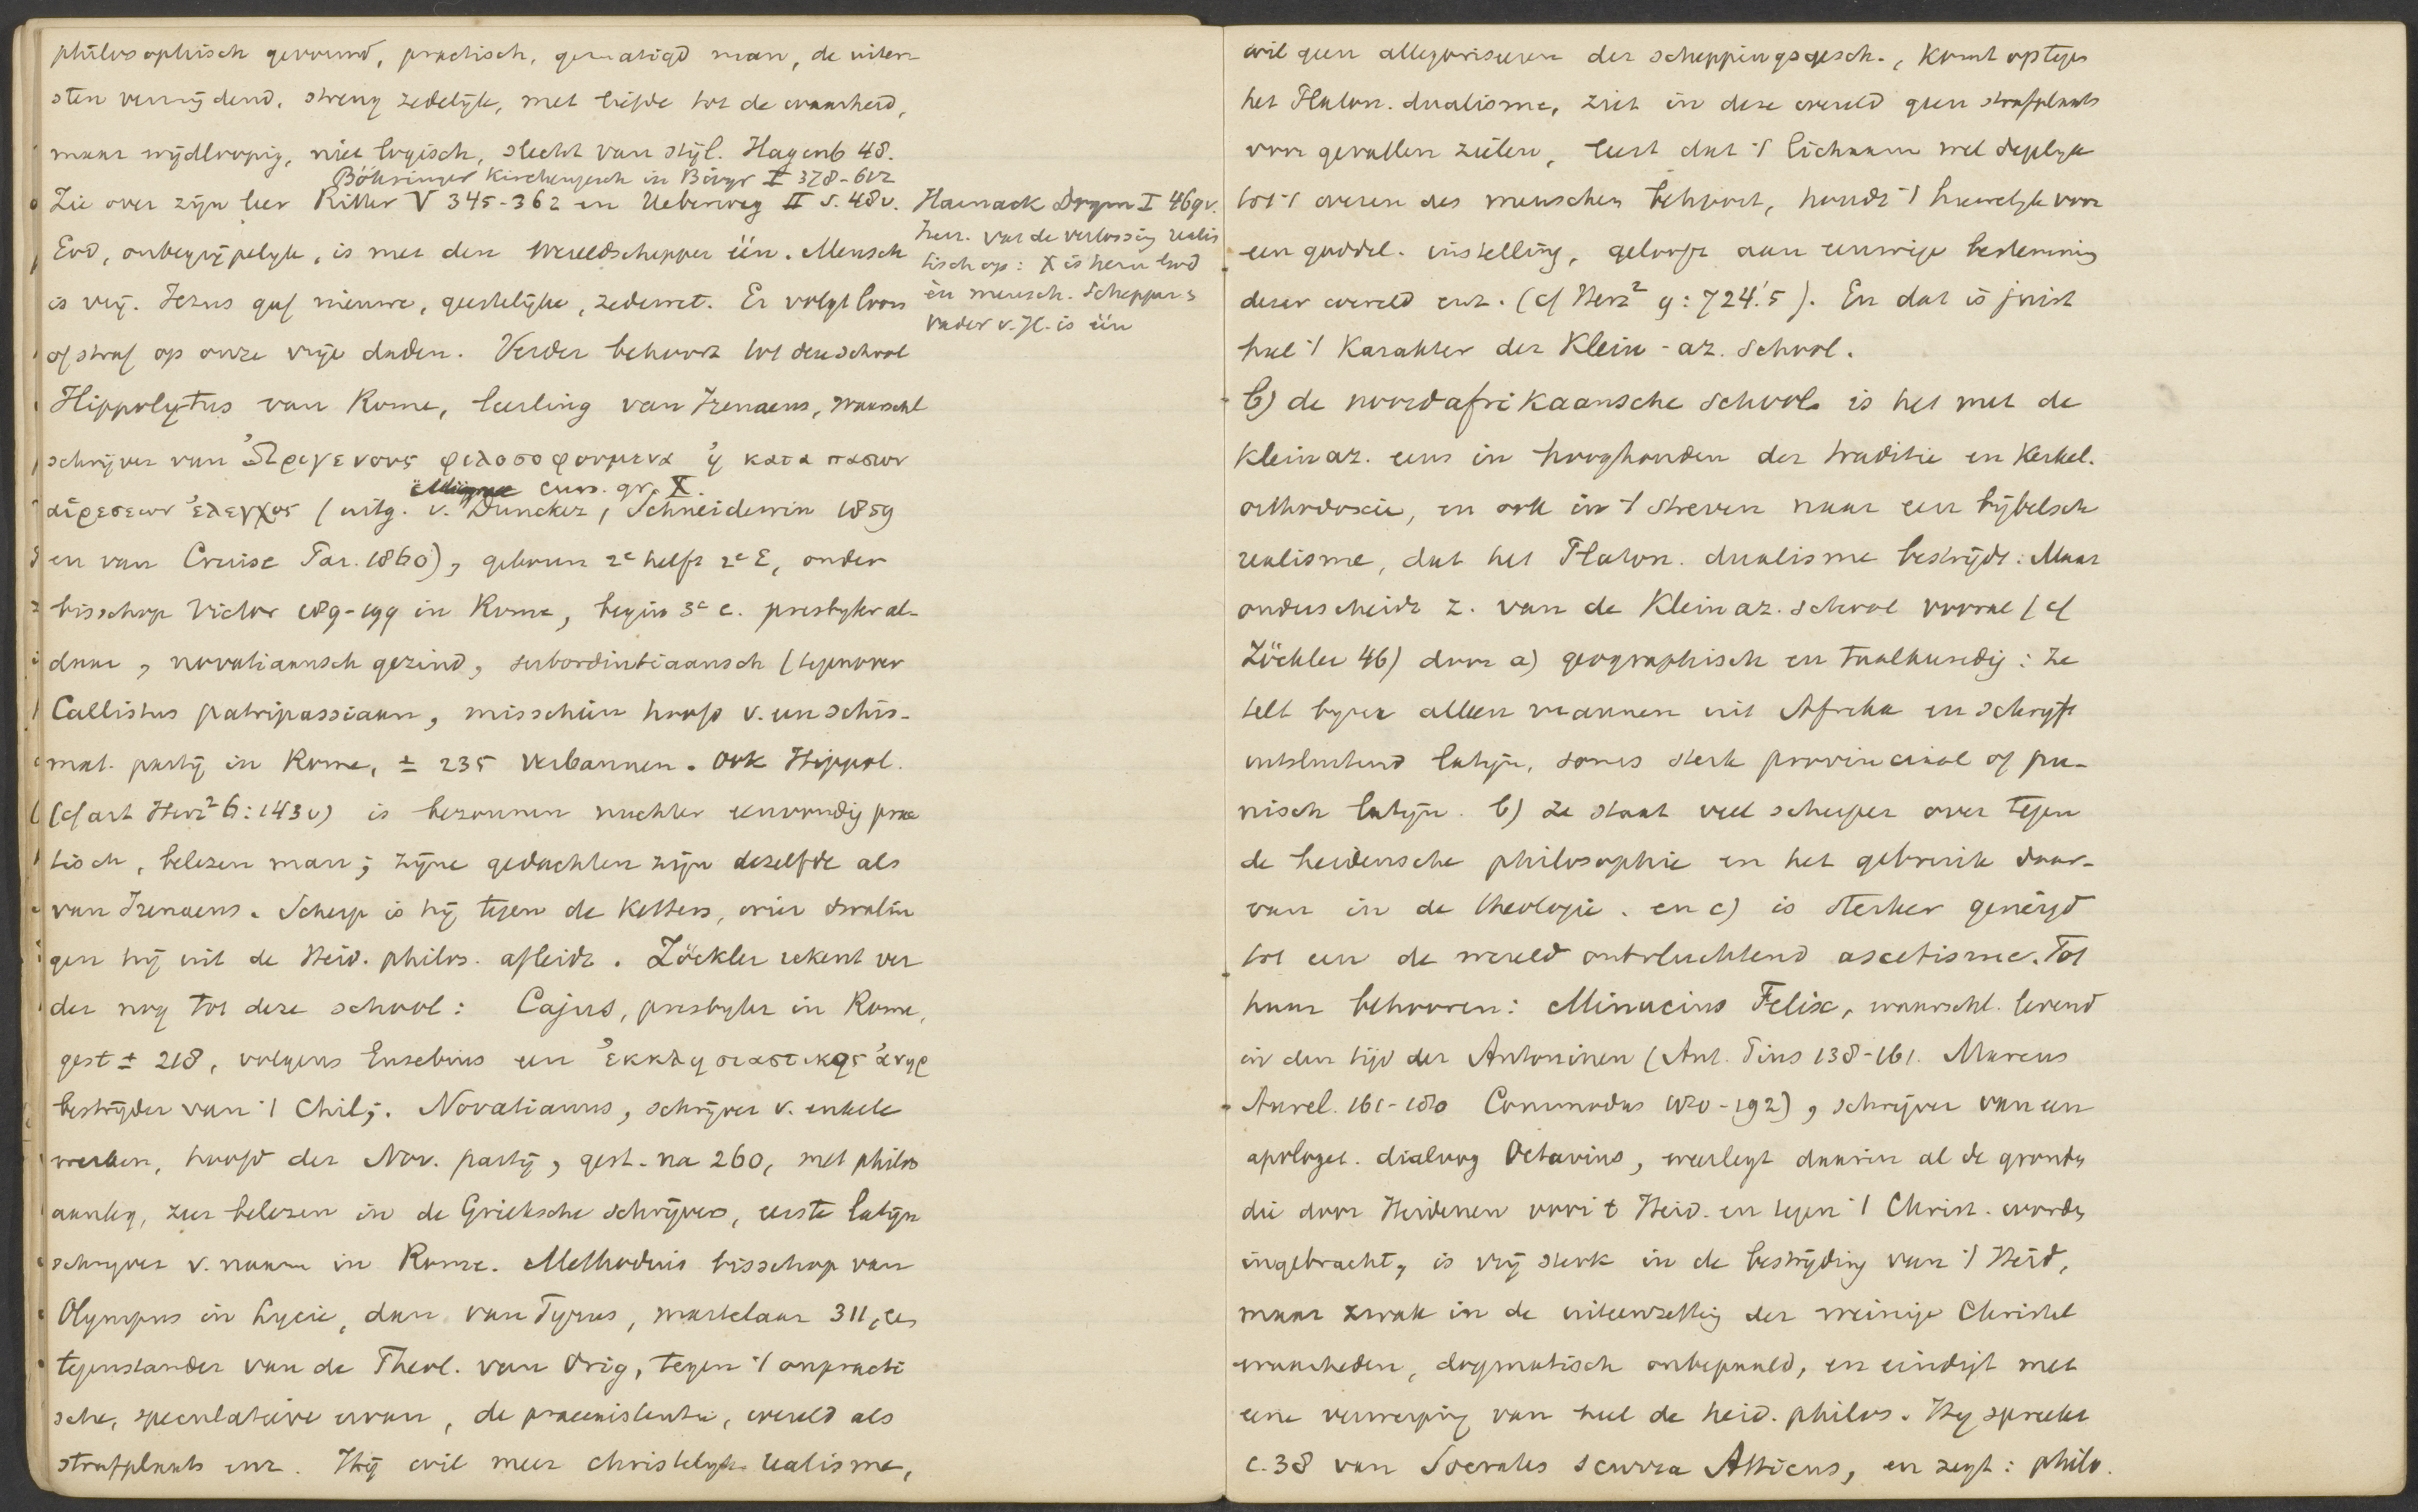 philosophisch gevormd, practisch, gematigd man, de uiter-
sten vermijdend, streng zedelijk, met liefde tot de waarheid,
maar wijdloopig, niet logisch, slecht van stijl. Hagenb 48.
Böhringer Kirchengesch in Biogr I 378-612
Zie over zijn leer Ritter V 345-362 en Ueberweg II S. 48v.
God, onbegrijpelijk, is met den Wereldschepper één. Mensch
is vrij. Jezus gaf nieuwe, geestelijke, zedewet. Er volgt loon
of straf op onze vrije daden. Verder behoort tot deze school
Hippolytus van Rome, leerling van Irenaeus, waarschl
schrijver van Ὠριγενους φιλοσοφουμενα ἠ κατα πασων
curs. gr. X.
αἱρεσεων ἐλεγχος (uitg. v. Duncker, Schneidewin 1859
en van Cruise Par. 1860), geboren 2e helft 2e E, onder
bisschop Victor 189-199 in Rome, begin 3e e. presbyter al-
daar, novatiaansch gezind, subordintiaansch (tegenover
Callistus patripassiaan, misschien hoofd v. een schis-
mat. partij in Rome, ± 235 verbannen. Ook Hippol.
(cf art Herz² 6:143v) is bezonnen nuchter eenvoudig prac
tisch, belezen man; zijne gedachten zijn dezelfde als
van Irenaeus. Scherp is hij tegen de Ketters, wier dwalin
gen hij uit de Heid. philos. afleidt. Zöckler rekent ver
der nog tot deze school: Cajus, presbyter in Rome,
gest ± 218, volgens Eusebius een ἐκκλησιαστικος ἀνηρ
bestrijder van 't Chil;. Novatianus, schrijver v. enkele
werken, hoofd der Nov. partij, gest. na 260, met philos
aanleg, zeer belezen in de Grieksche schrijvers, eerste latijn
schrijver v. naam in Rome. Methodius bisschop van
Olympus in Lycie, dan van Tyrus, martelaar 311,
tegenstander van de Theol. van Orig, tegen 't onpracti
sche, speculatieve ervan, de praeexistentie, wereld als
strafplaats enz. Hij wil meer christelyk realisme,
Harnack Dogm I 469v.
Iren. vat de verlossing realis
tisch op: X is ware God
èn mensch. Schepper =
Vader v. J.C. is één
wil geen allegoriseren der scheppingsgesch., komt op tegen
het Platon. dualisme, ziet in deze wereld geen strafplaats
voor gevallen zielen, leert dat 't lichaam wel deglyk
tot 't wezen des menschen behoort, houdt 't huwelyk voor
een goddel. instelling, gelooft aan eeuwige bestemming
dezer wereld enz. (cf Herz² 9:724.'5). En dat is juist
heel 't Karakter der Klein-az. School.
b) de noordafrikaansche School is het met de
Kleinaz. eens in hooghouden der traditie en Kerkel.
orthodoxie, en ook in 't streven naar een bijbelsch
realisme, dat het Platon. dualisme bestrijdt: Maar
onderscheidt z. van de Kleinaz. school vooral (cf
Zöckler 46) door a) geographisch en taalkundig: ze
telt byna alleen mannen uit Afrika en schrijft
uitsluitend latijn, soms sterk provinciaal of pu-
nisch latijn. b) ze staat veel scherper over tegen
de heidensche philosophie en het gebruik daar-
van in de theologie. en c) is sterker geneigd
tot een de wereld ontvluchtend ascetisme. Tot
haar behooren: Minucius Felix, waarschl. levend
in den tijd der Antoninen (Ant. Pius 138-161. Marcus
Aurel. 161-180 Commodus 180-192), schrijver van een
apologet. dialoog Octavius, weerlegt daarin al de gronden
die door Heidenen voor 't Heid. en tegen 't Christ. worden
ingebracht, is vrij sterk in de bestrijding van 't Heid,
maar zwak in de uiteenzetting der weinige Christel
waarheden, dogmatisch onbepaald, en eindigt met
eene verwerping van heel de heid. philos. Hy spreekt
c. 38 van Socrates scurra Atticus, en zegt: philo.